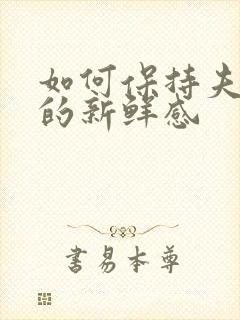 如何保持夫
的新鲜感
书易本尊